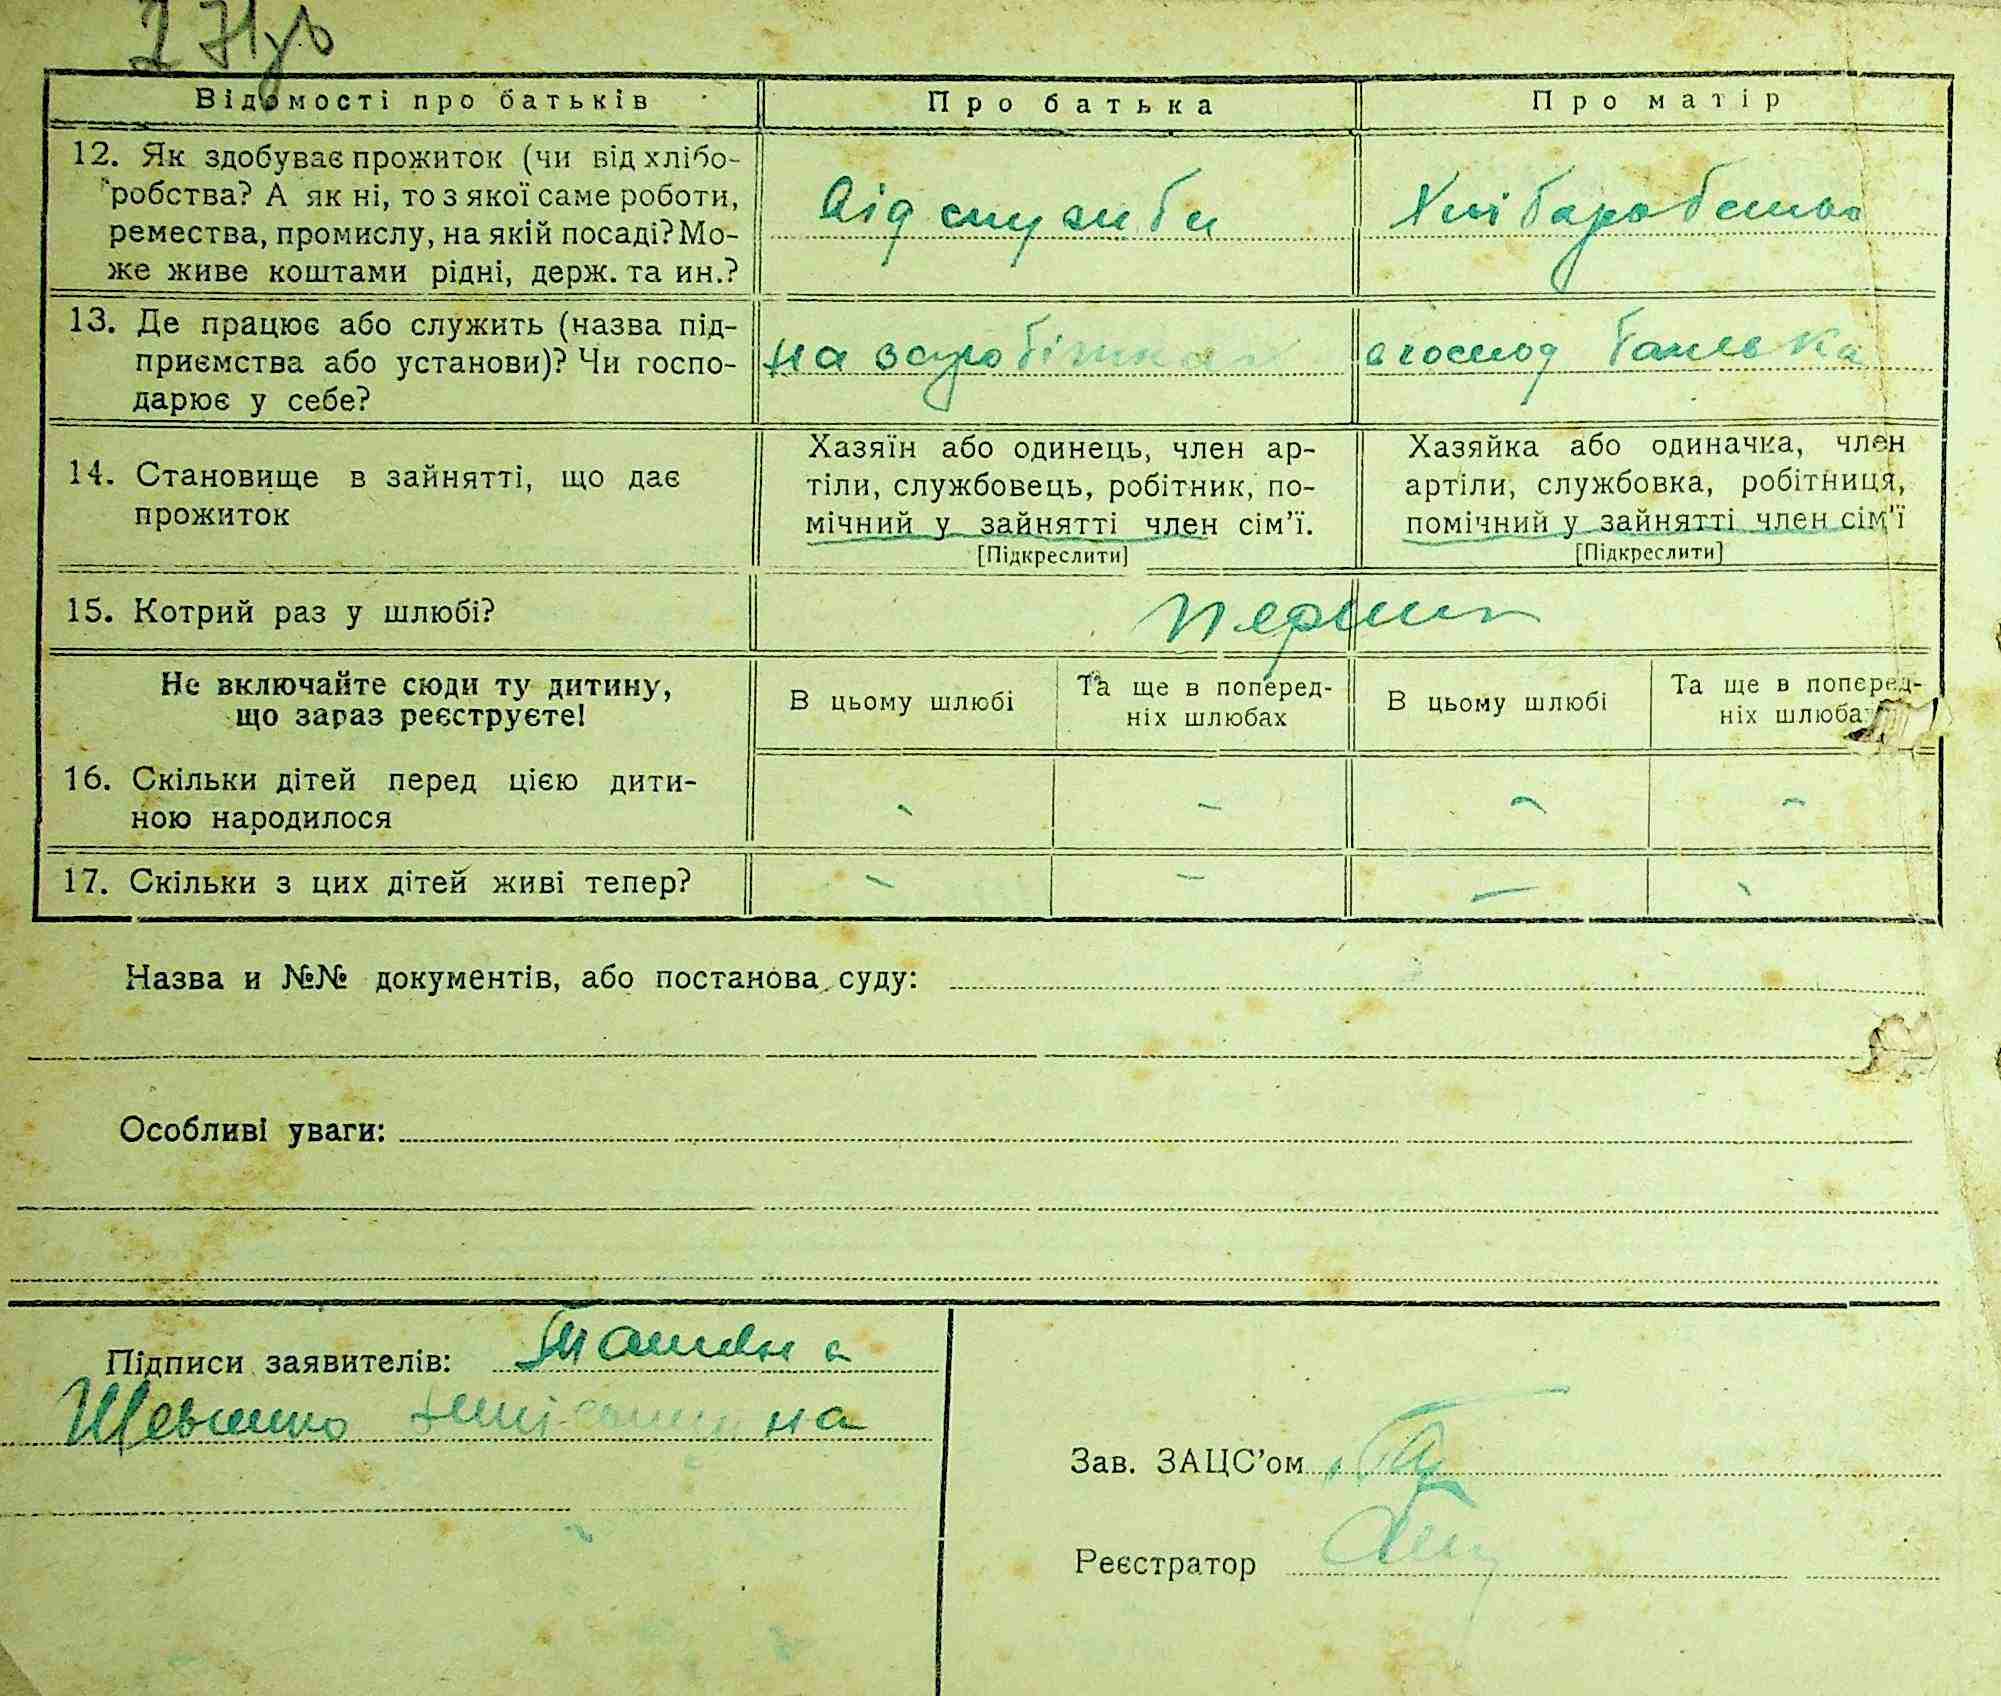 Відомості про батьків Про батька Про матір
12. Як здобуває прожиток (чи від хлібо-
робства? А як ні, то з якої саме роботи,
ремества, промислу, на якій посаді? Мо-
же живе коштами рідні, держ. та ин.?
Від служби
Хліборобство
13. Де працює або служить (назва під-
приємства або установи)? Чи госпо-
дарює у себе?
на заробітках
в господ батька
14. Становище в зайнятті, що дає
прожиток
Хазяїн або одинець, член ар-
тіли, службовець, робітник, по-
мічний у зайнятті член сім'ї.
[Підкреслити]
Хазяйка або одиначка, член
артіли, службовка, робітниця,
помічний у зайнятті член сім'ї
[Підкреслити]
15. Котрий раз у шлюбі?
Не включайте сюди ту дитину,
що зараз реєструєте!
В цьому шлюбі
Та ще в поперед-
ніх шлюбах
В цьому шлюбі
Та ще в поперед-
ніх шлюбах
16. Скільки дітей перед цією дити-
ною народилося
- - - -
17. Скільки з цих дітей живі тепер?
- - - -
Назва и №№ документів, або постанова суду:
Особливі уваги:
Підписи заявителів:
Зав. ЗАЦС'ом
Реєстратор